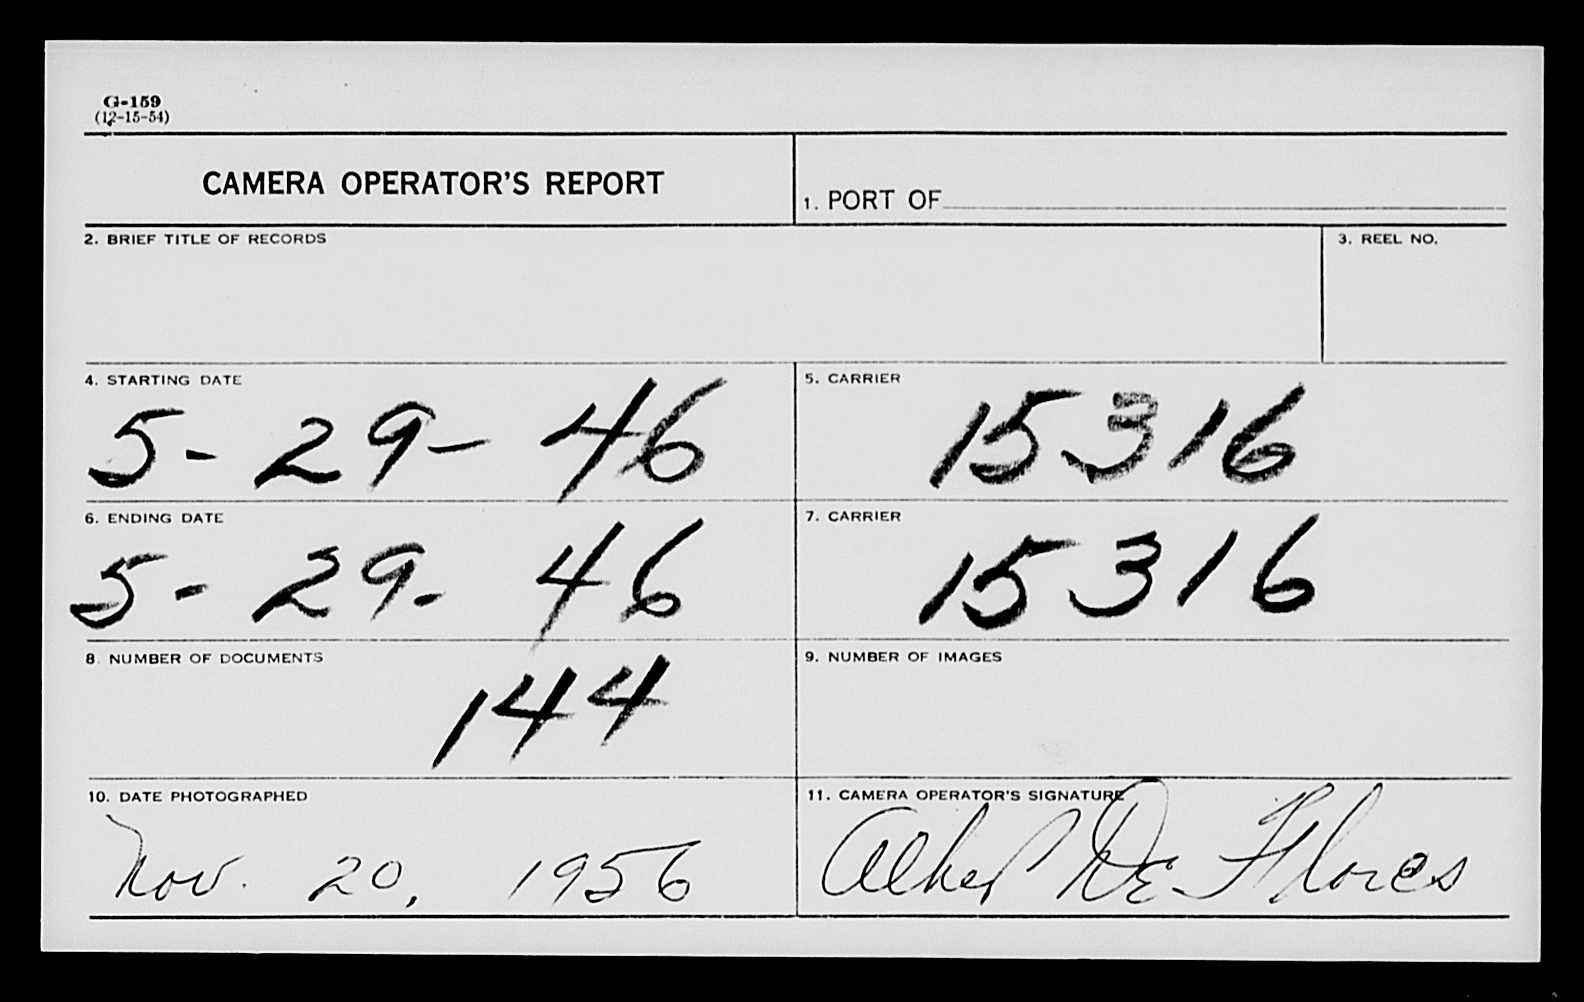 G-159
(12-15-54)
CAMERA OPERATOR'S REPORT
1. PORT OF
2. BRIEF TITLE OF RECORDS
3. REEL NO.
4. STARTING DATE
5-29-46
5. CARRIER
15316
6. ENDING DATE
5-29-46
7. CARRIER
15316
8. NUMBER OF DOCUMENTS
144
9. NUMBER OF IMAGES
10. DATE PHOTOGRAPHED
Nov. 20, 1956
11. CAMERA OPERATOR'S SIGNATURE
De Flores